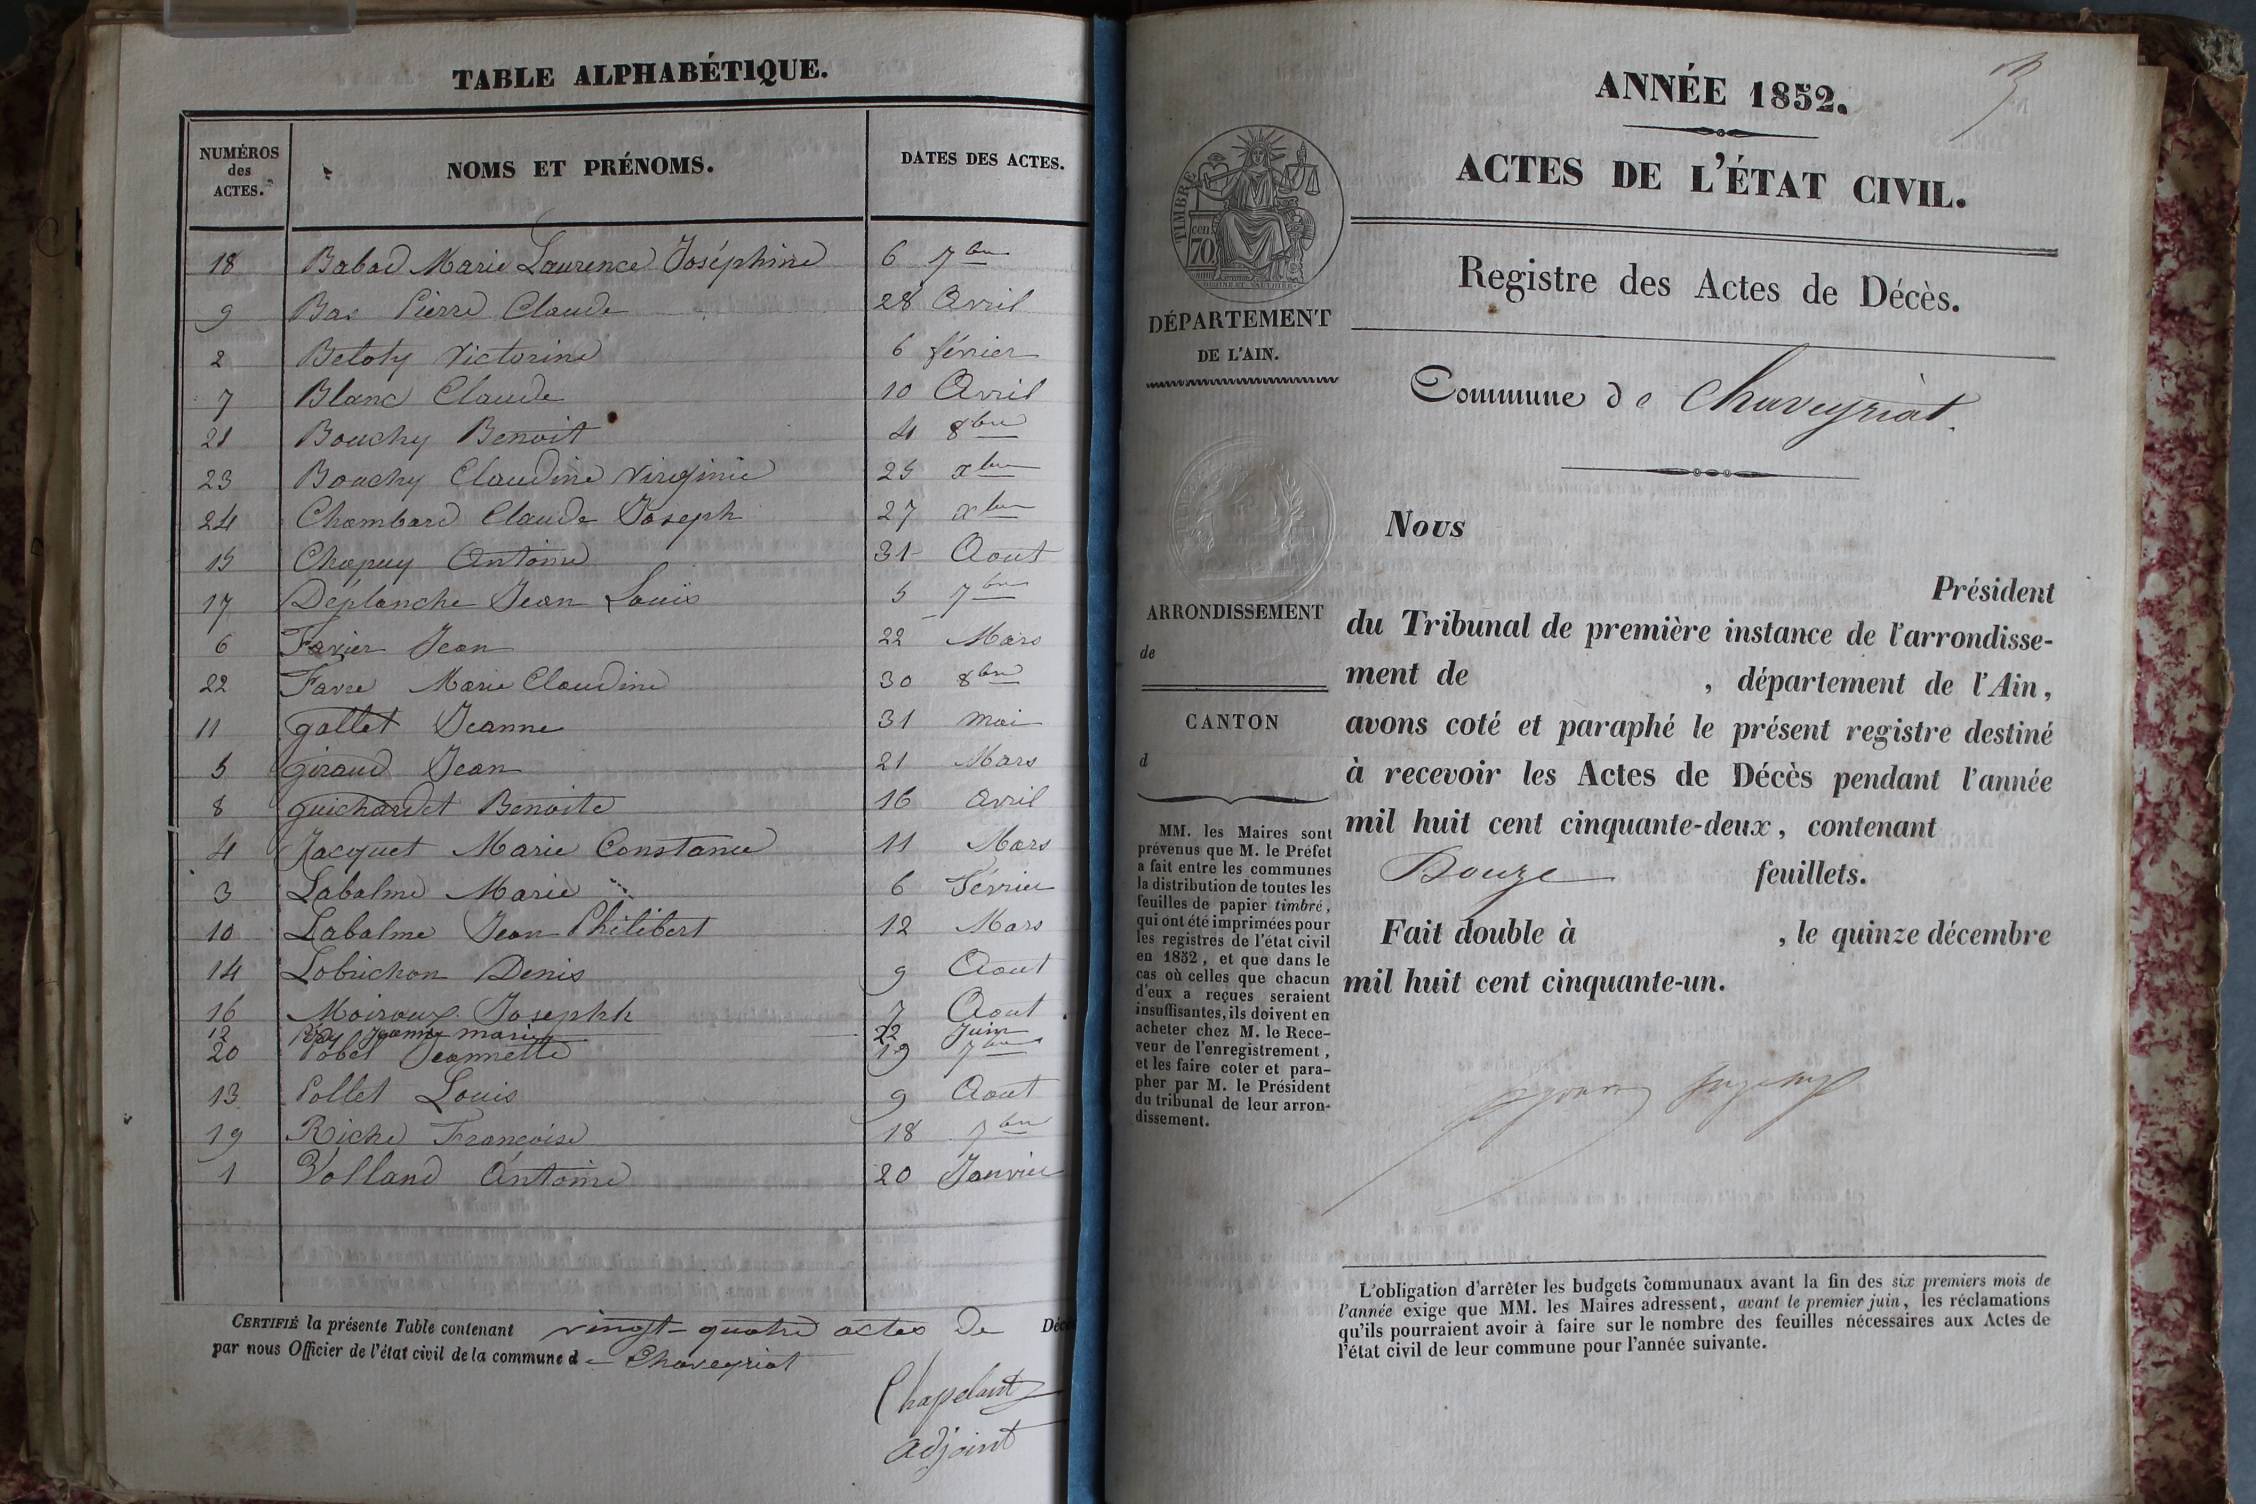 TABLE ALPHABÉTIQUE.
NUMÉROS des ACTES. NOMS ET PRÉNOMS. DATES DES ACTES.
18 Babad Marie Laurence Joséphine 6 7bre
9 Bas Pierre Claude 28 Avril
2 Betoly Victorine 6 février
7 Blanc Claude 10 Avril
21 Bouchy Benoit 4 8bre
23 Bouchy Claudine Virginie 25 xbre
24 Chambard Claude Joseph 27 xbre
15 Chapuy Antoine 31 Aout
17 Déplanche Jean Louis 5 7bre
6 Favier Jean 22 Mars
22 Favre Marie Claudine 30 8bre
11 gallet Jeanne 31 mai
5 giraud Jean 21 Mars
8 guichardet Benoite 16 avril
4 Jacquet Marie Constance 11 Mars
3 Labalme Marie 6 Février
10 Labalme Jean Philibert 12 Mars
14 Lobrichon Denis 9 Aout
16 Moiroux Josephh 7 Aout
12 Jeanne marie 22 Juin
20 Pobel Jeannette 19 7bre
13 Pollet Louis 9 Aout
19 Riche Françoise 18 7bre
1 Volland Antoine 20 Janvier
CERTIFIÉ la présente Table contenant vingt-quatre actes de Décè
par nous Officier de l'état civil de la commune d e Chaveyriat
Chapeland
adjoint
ANNÉE 1852.
ACTES DE L'ÉTAT CIVIL.
Registre des Actes de Décès.
TIMBRE
70 cen
DÉPARTEMENT
DE L'AIN.
Commune de Chaveyriat.
Nous
Président
du Tribunal de première instance de l'arrondisse-
ment de , département de l'Ain,
avons coté et paraphé le présent registre destiné
à recevoir les Actes de Décès pendant l'année
mil huit cent cinquante-deux, contenant
Douze feuillets.
Fait double à , le quinze décembre
mil huit cent cinquante-un.
ARRONDISSEMENT
de
CANTON
d
MM. les Maires sont
prévenus que M. le Préfet
a fait entre les communes
la distribution de toutes les
feuilles de papier timbré,
qui ont été imprimées pour
les registres de l'état civil
en 1852, et que dans le
cas où celles que chacun
d'eux a reçues seraient
insuffisantes, ils doivent en
acheter chez M. le Rece-
veur de l'enregistrement,
et les faire coter et para-
pher par M. le Président
du tribunal de leur arron-
dissement.
L'obligation d'arrêter les budgets communaux avant la fin des six premiers mois de
l'année exige que MM. les Maires adressent, avant le premier juin, les réclamations
qu'ils pourraient avoir à faire sur le nombre des feuilles nécessaires aux Actes de
l'état civil de leur commune pour l'année suivante.